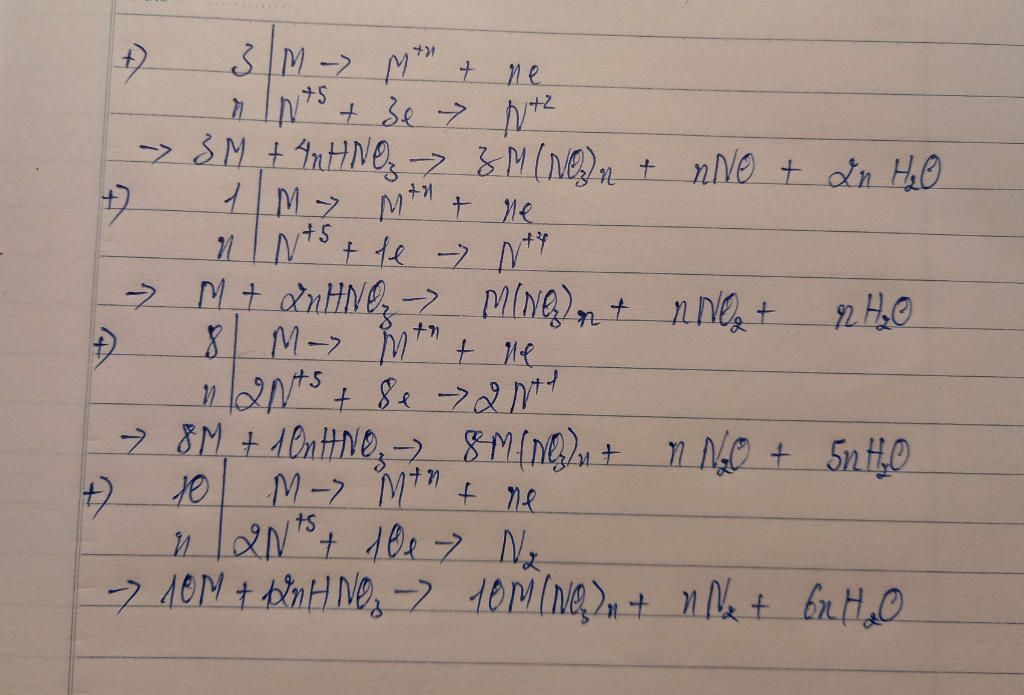 +) 3 | M → M⁺ⁿ + ne
n | N⁺⁵ + 3e → N⁺²
→ 3M + 4nHNO₃ → 3M(NO₃)ₙ + nNO + 2nH₂O
+) 1 | M → M⁺ⁿ + ne
n | N⁺⁵ + 1e → N⁺⁴
→ M + 2nHNO₃ → M(NO₃)ₙ + nNO₂ + nH₂O
+) 8 | M → M⁺ⁿ + ne
n | 2N⁺⁵ + 8e → 2N⁺¹
→ 8M + 10nHNO₃ → 8M(NO₃)ₙ + nN₂O + 5nH₂O
+) 10 | M → M⁺ⁿ + ne
n | 2N⁺⁵ + 10e → N₂
→ 10M + 12nHNO₃ → 10M(NO₃)ₙ + nN₂ + 6nH₂O